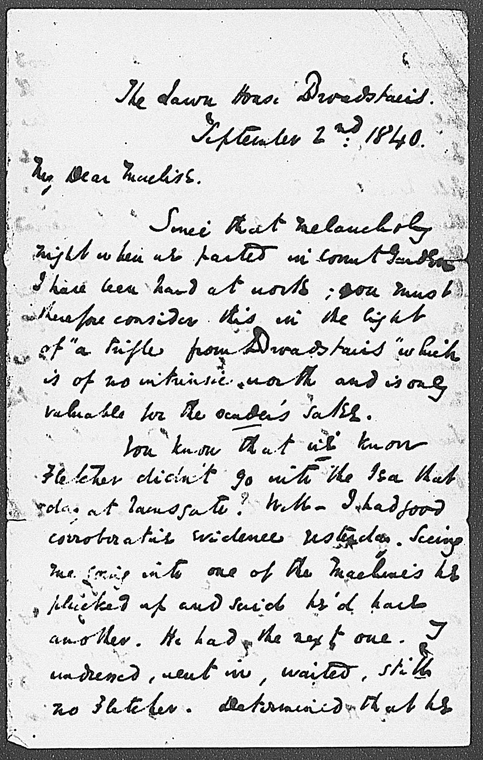 The Lawn House Broadstairs.
September 2nd. 1840.
My Dear Maclise.
Since that melancholy
night when we parted in Covent Garden
I have been hard at work; you must
therefore consider this in the light
of "a trifle from Broadstairs" which
is of no intrinsic worth and is only
valuable for the sender's sake.
You know that we know
Fletcher didn't go into the Sea that
day at Ramsgate? Well - I had good
corroborative evidence yesterday. Seeing
me going into one of the Machines he
plucked up and said he'd have
another. He had the next one. I
undressed, went in, waited, still
no Fletcher. Determined that he